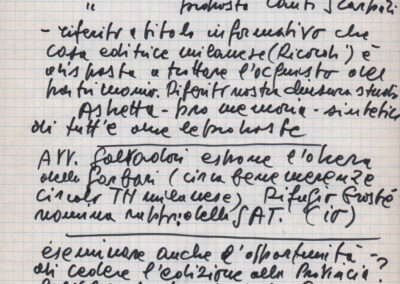 " proposta Conti Scarpari
- riferito a titolo informativo che
casa editrice milanese (Ricordi) è
disposta a trattare l'acquisto del
patrimonio. Riferito nostra chiusura studi
Aspetta - pro memoria - sintetico
di tutt'e due le proposte
AVV. Salvadori espone l'opera
della Garbari (circa benemerenze
circolo TN milanese). Rifugio Grosté
nomina SAT. (io)
esaminare anche l'opportunità - ?
di cedere l'edizione alla Provincia